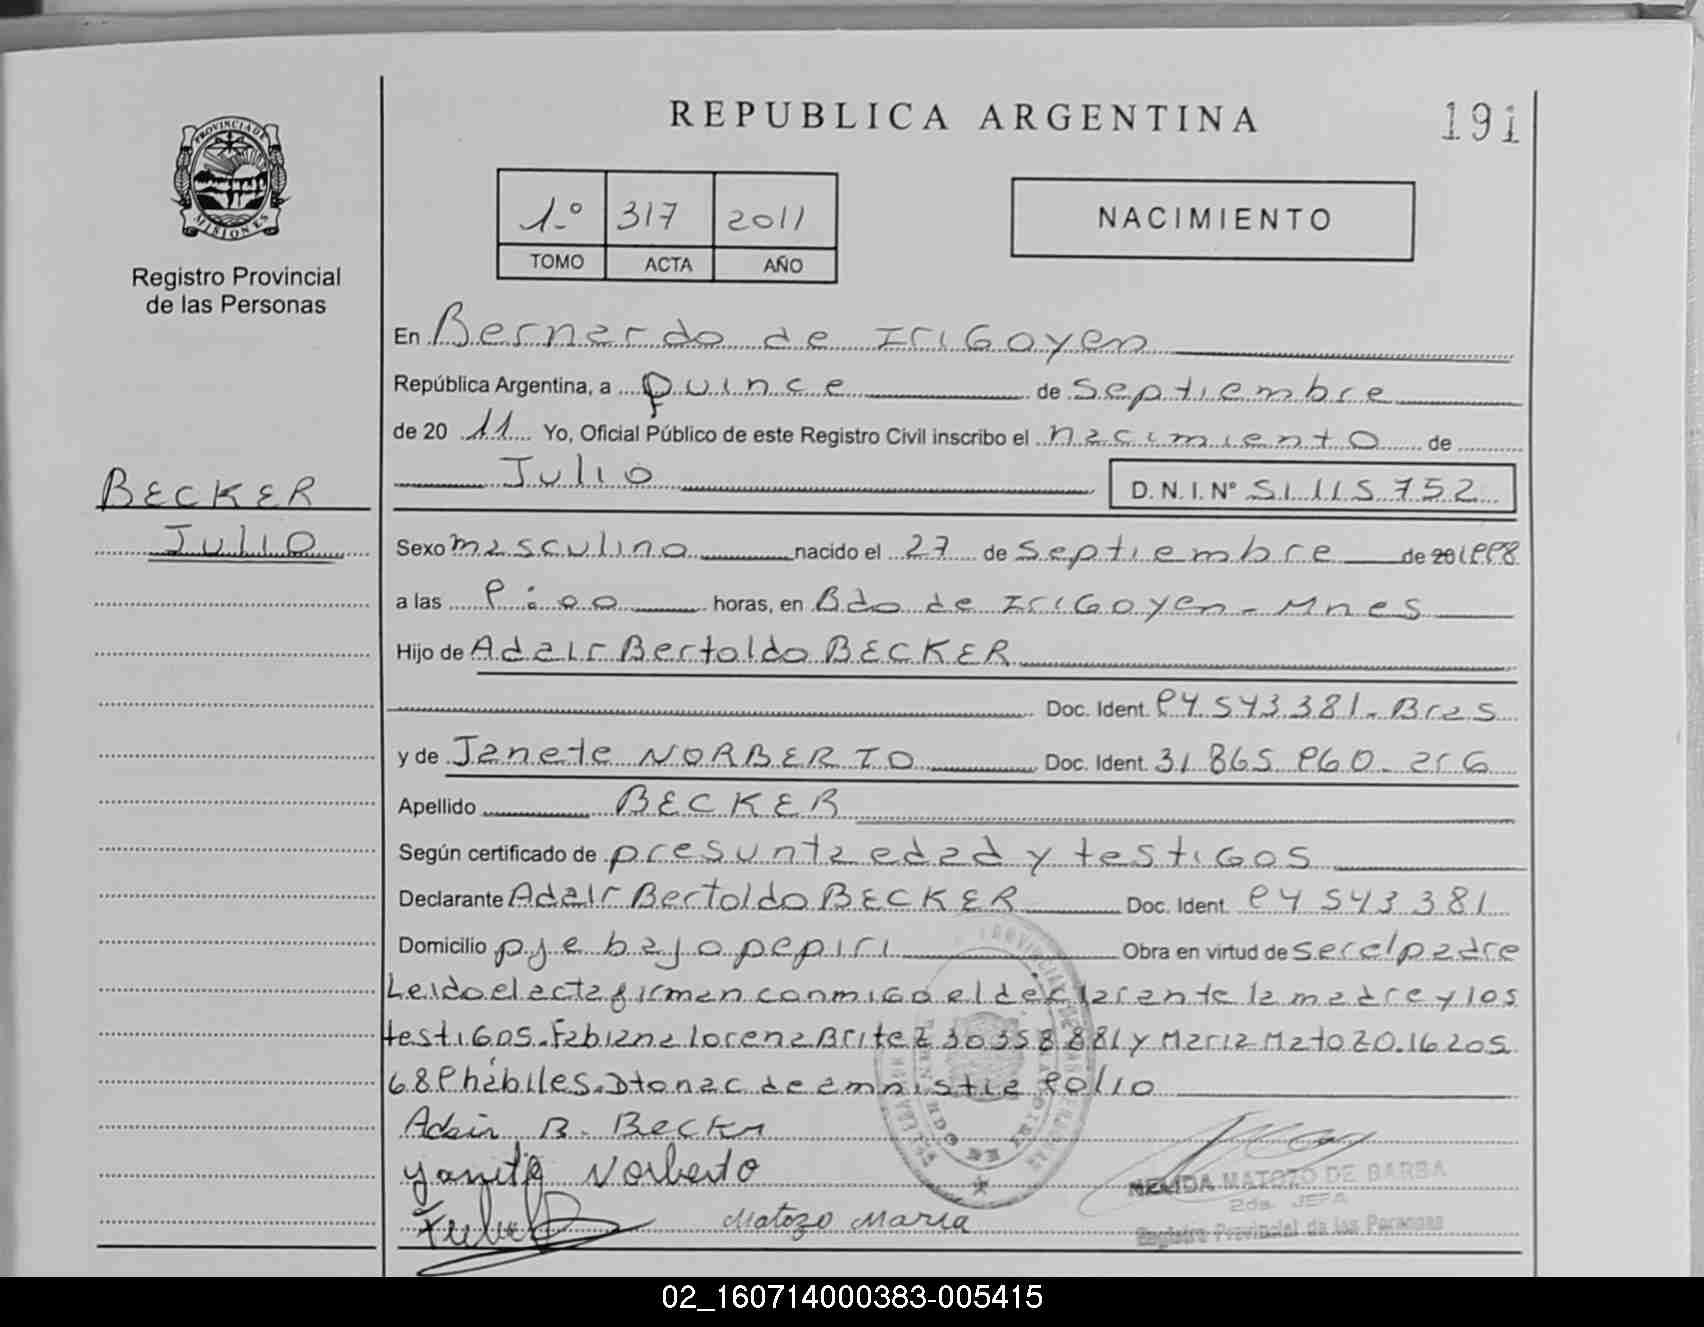 REPUBLICA ARGENTINA
191
PROVINCIA DE
MISIONES
Registro Provincial
de las Personas
1.º 317 2011
TOMO ACTA AÑO
NACIMIENTO
BECKER
Julio
En Bernardo de Irigoyen
República Argentina, a quince de Septiembre
de 20 11 Yo, Oficial Público de este Registro Civil inscribo el nacimiento de
Julio D.N.I. Nº 51.115.752
Sexo masculino nacido el 27 de Septiembre de 20 1998
a las 9:00 horas, en Bdo de Irigoyen - Mnes
Hijo de Adair Bertoldo BECKER
Doc. Ident. 94543381. Bras
y de Janete NORBERTO Doc. Ident. 31.865.960. arg
Apellido BECKER
Según certificado de presunta edad y testigos
Declarante Adair Bertoldo BECKER Doc. Ident. 94543381
Domicilio pje bajo pepiri Obra en virtud de ser el padre
Leido el acta firman conmigo el declarante la madre y los
testigos. Fabiana lorena Britez 30358881 y Maria Matozo.16205
689 hábiles. Dto nac de amnistia 90/10
Adair B. Becker
Yanete Norberto
Matozo Maria
NELIDA MATOZO DE BARBA
2da. JEFA
Registro Provincial de las Personas
02_160714000383-005415